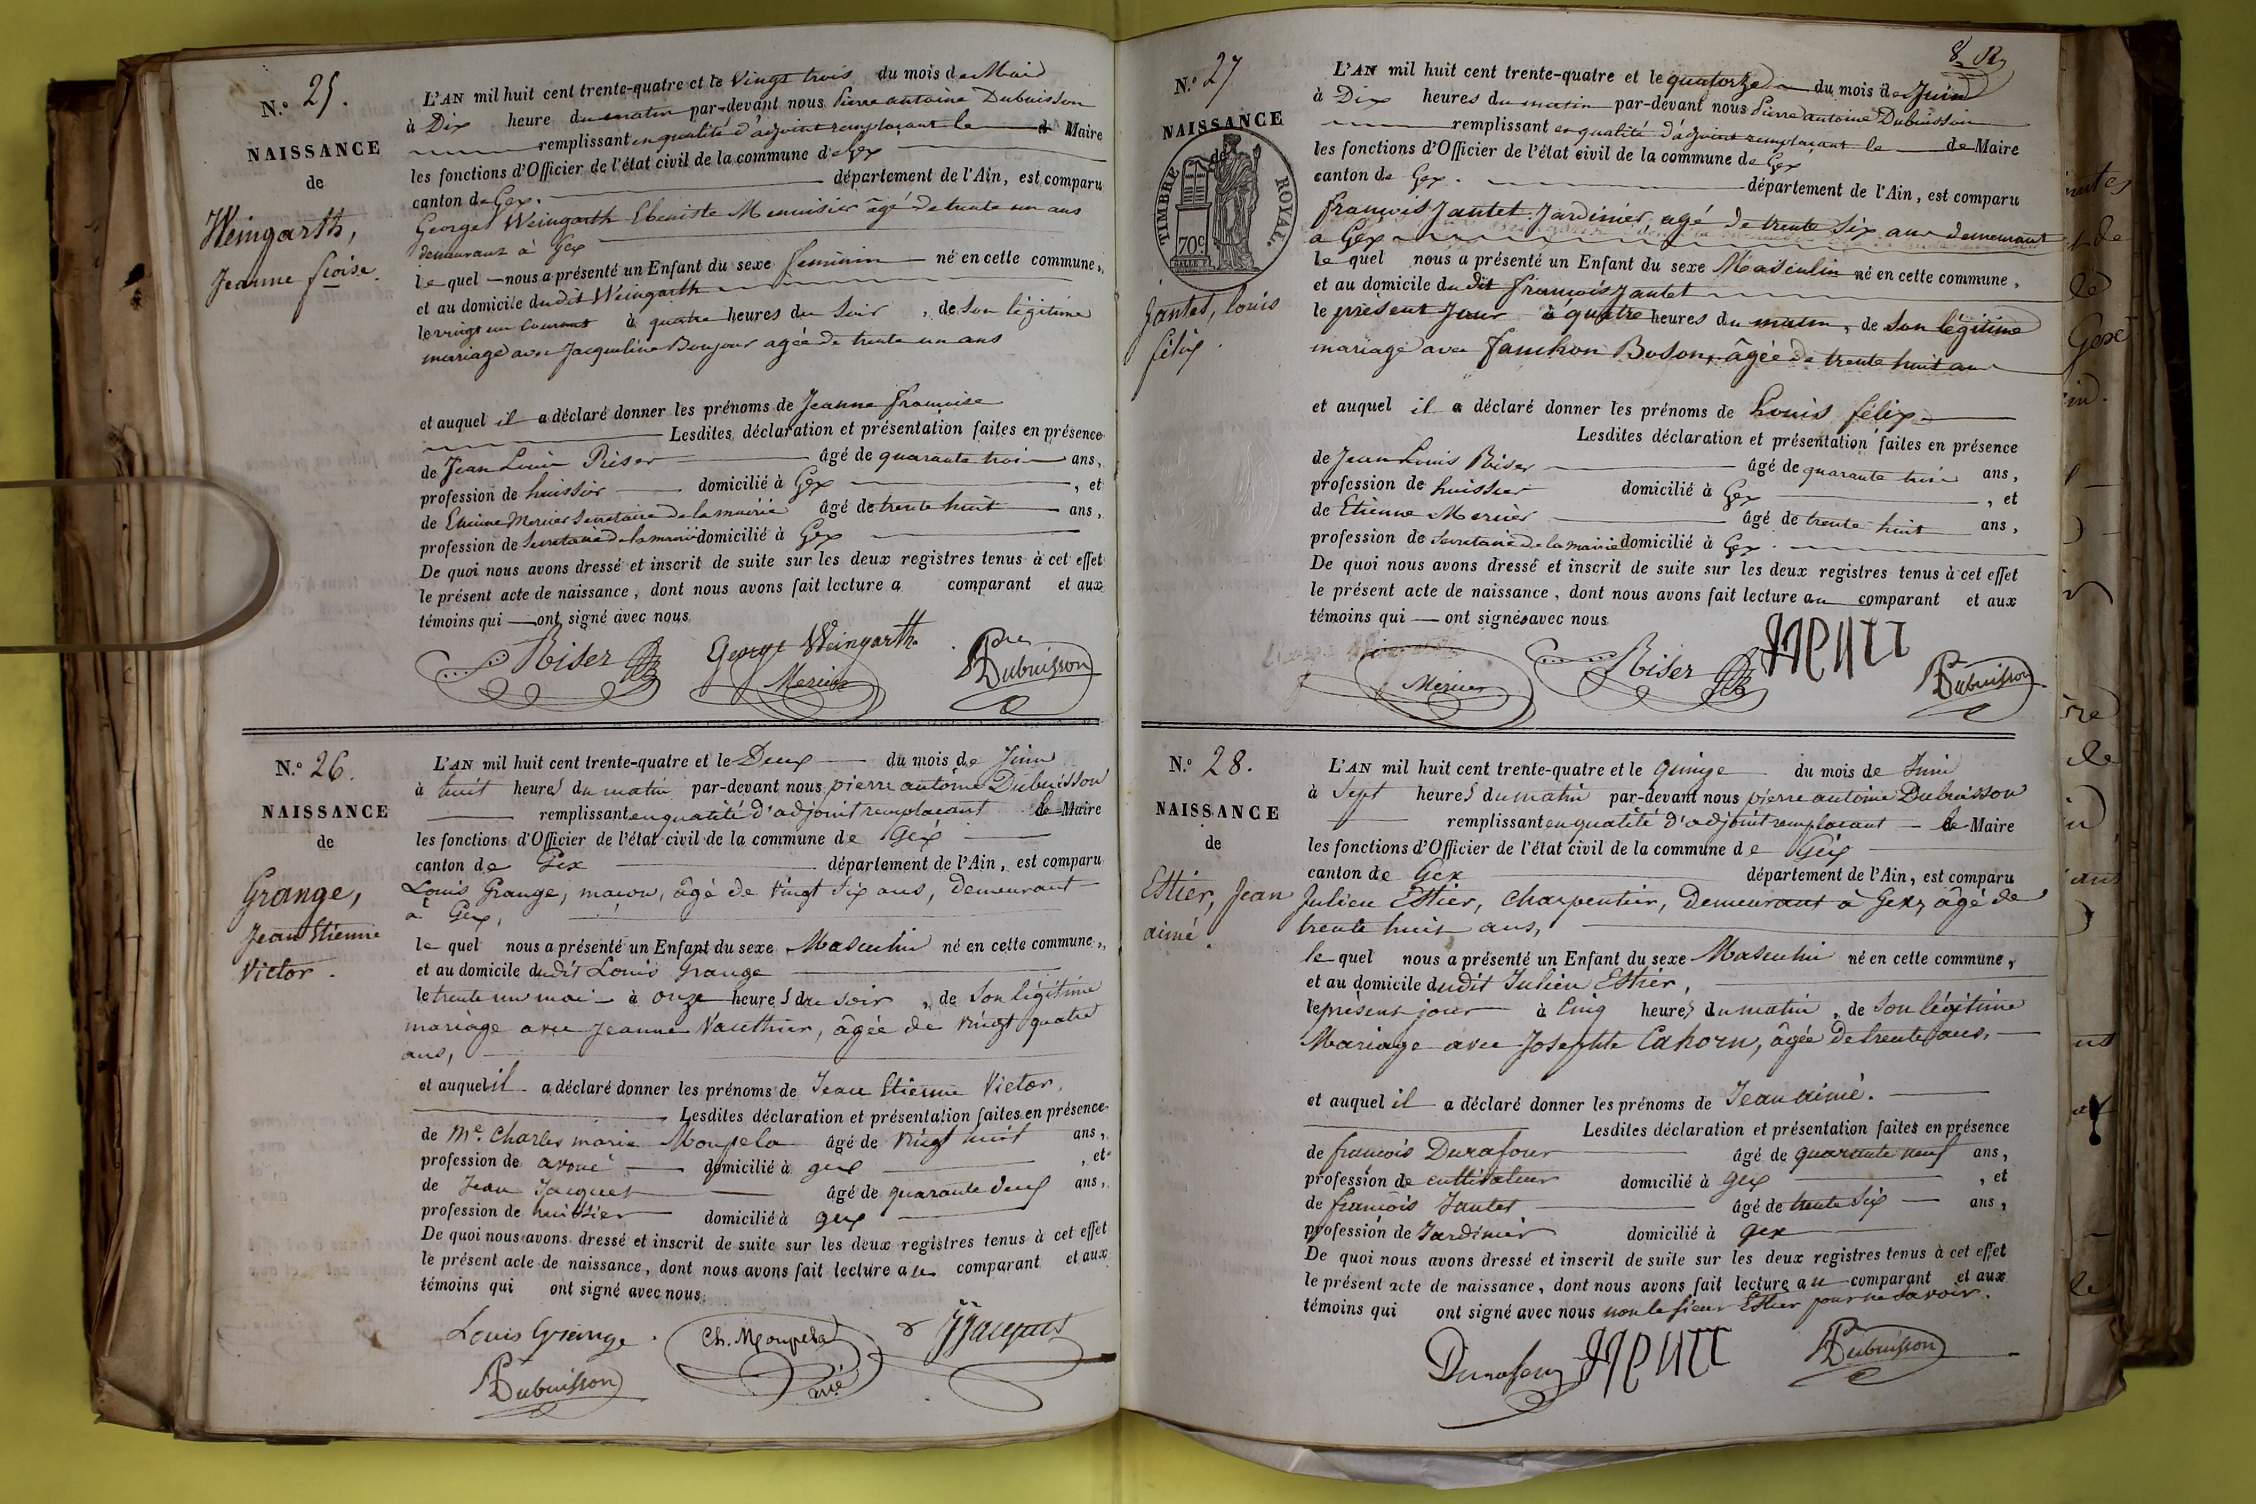 N.° 25.
NAISSANCE
de
Weingarth,
Jeanne fçoise.
L'AN mil huit cent trente-quatre et le Vingt trois du mois de Mai
à Dix heure du matin par-devant nous Pierre antoine Dubuisson
remplissant en qualité d'adjoint remplacant le Maire
les fonctions d'Officier de l'état civil de la commune de Gex
canton de Gex. département de l'Ain, est comparu
George Weingarth Ebeniste Menuisier âgé de trente un ans
demeurant à Gex
le quel nous a présenté un Enfant du sexe feminin né en cette commune,
et au domicile dudit Weingarth
le vingt un courant à quatre heures du Soir, de Son légitime
mariage avec Jacqueline Bonjour agée de trente un ans
et auquel il a déclaré donner les prénoms de Jeanne francoise
Lesdites déclaration et présentation faites en présence
de Jean Louis Riser âgé de quarante trois ans,
profession de huissier domicilié à Gex, et
de Etienne Mercier Secretaire de la mairie âgé de trente huit ans,
profession de Secretaire de la mairie domicilié à Gex
De quoi nous avons dressé et inscrit de suite sur les deux registres tenus à cet effet
le présent acte de naissance, dont nous avons fait lecture a comparant et aux
témoins qui ont signé avec nous
Riser George Weingarth
Mercier Pre Dubuisson
N.° 26.
NAISSANCE
de
Grange,
Jean Etienne
Victor.
L'AN mil huit cent trente-quatre et le Deux du mois de Juin
à huit heures du matin par-devant nous pierre antoine Dubuisson
remplissant en qualité d'adjoint remplacant le Maire
les fonctions d'Officier de l'état civil de la commune de Gex
canton de Gex département de l'Ain, est comparu
Louis Grange, macon, âgé de vingt six ans, demeurant
à Gex,
le quel nous a présenté un Enfant du sexe Masculin né en cette commune,
et au domicile dudit Louis Grange
le trente un mai à onze heures du soir, de Son légitime
mariage avec Jeanne Vauthier, âgée de vingt quatre
ans,
et auquel il a déclaré donner les prénoms de Jean Etienne Victor.
Lesdites déclaration et présentation faites en présence
de Me. Charles marie Moupela âgé de vingt huit ans,
profession de avoué domicilié à gex, et
de Jean Jacques âgé de quarante deux ans,
profession de huissier domicilié à gex
De quoi nous avons dressé et inscrit de suite sur les deux registres tenus à cet effet
le présent acte de naissance, dont nous avons fait lecture au comparant et aux
témoins qui ont signé avec nous.
Louis Grange. Ch. Moupela JJacques
Dubuisson avé
N.° 27
NAISSANCE
de
TIMBRE ROYAL.
70c
Jantet, louis
félix.
L'AN mil huit cent trente-quatre et le quatorze du mois de Juin
à Dix heures du matin par-devant nous Pierre antoine Dubuisson
remplissant en qualité d'adjoint remplacant le Maire
les fonctions d'Officier de l'état civil de la commune de Gex
canton de Gex. département de l'Ain, est comparu
françois Jantet Jardinier agé de trente six ans demeurant
à Gex
le quel nous a présenté un Enfant du sexe Masculin né en cette commune,
et au domicile du dit françois Jantet
le présent Jour à quatre heures du matin, de Son légitime
mariage avec fanchon Boson, âgée de trente huit ans
et auquel il a déclaré donner les prénoms de Louis félix
Lesdites déclaration et présentation faites en présence
de Jean Louis Riser âgé de quarante trois ans,
profession de huissier domicilié à Gex, et
de Etienne Mercier âgé de trente huit ans,
profession de Secretaire de la mairie domicilié à Gex.
De quoi nous avons dressé et inscrit de suite sur les deux registres tenus à cet effet
le présent acte de naissance, dont nous avons fait lecture au comparant et aux
témoins qui ont signé avec nous
Mercier Riser Dubuisson
N.° 28.
NAISSANCE
de
Esttier, Jean
aimé.
L'AN mil huit cent trente-quatre et le quinze du mois de Juin
à Sept heures du matin par-devant nous pierre antoine Dubuisson
remplissant en qualité d'adjoint remplacant le Maire
les fonctions d'Officier de l'état civil de la commune de Gex
canton de Gex département de l'Ain, est comparu
Julien Esttier, Charpentier, Demeurant à Gex, âgé de
trente huit ans,
le quel nous a présenté un Enfant du sexe Masculin né en cette commune,
et au domicile dudit Julien Esttier,
le présent jour à Cinq heures du matin, de Son légitime
Mariage avec Josephte Cahorn, âgée de trente ans,
et auquel il a déclaré donner les prénoms de Jean aimé.
Lesdites déclaration et présentation faites en présence
de françois Durafour âgé de quarante neuf ans,
profession de cultivateur domicilié à gex, et
de françois Jantet âgé de trente Six ans,
profession de Jardinier domicilié à gex
De quoi nous avons dressé et inscrit de suite sur les deux registres tenus à cet effet
le présent acte de naissance, dont nous avons fait lecture au comparant et aux
témoins qui ont signé avec nous non le sieur Esttier pour ne savoir.
Durafour Dubuisson